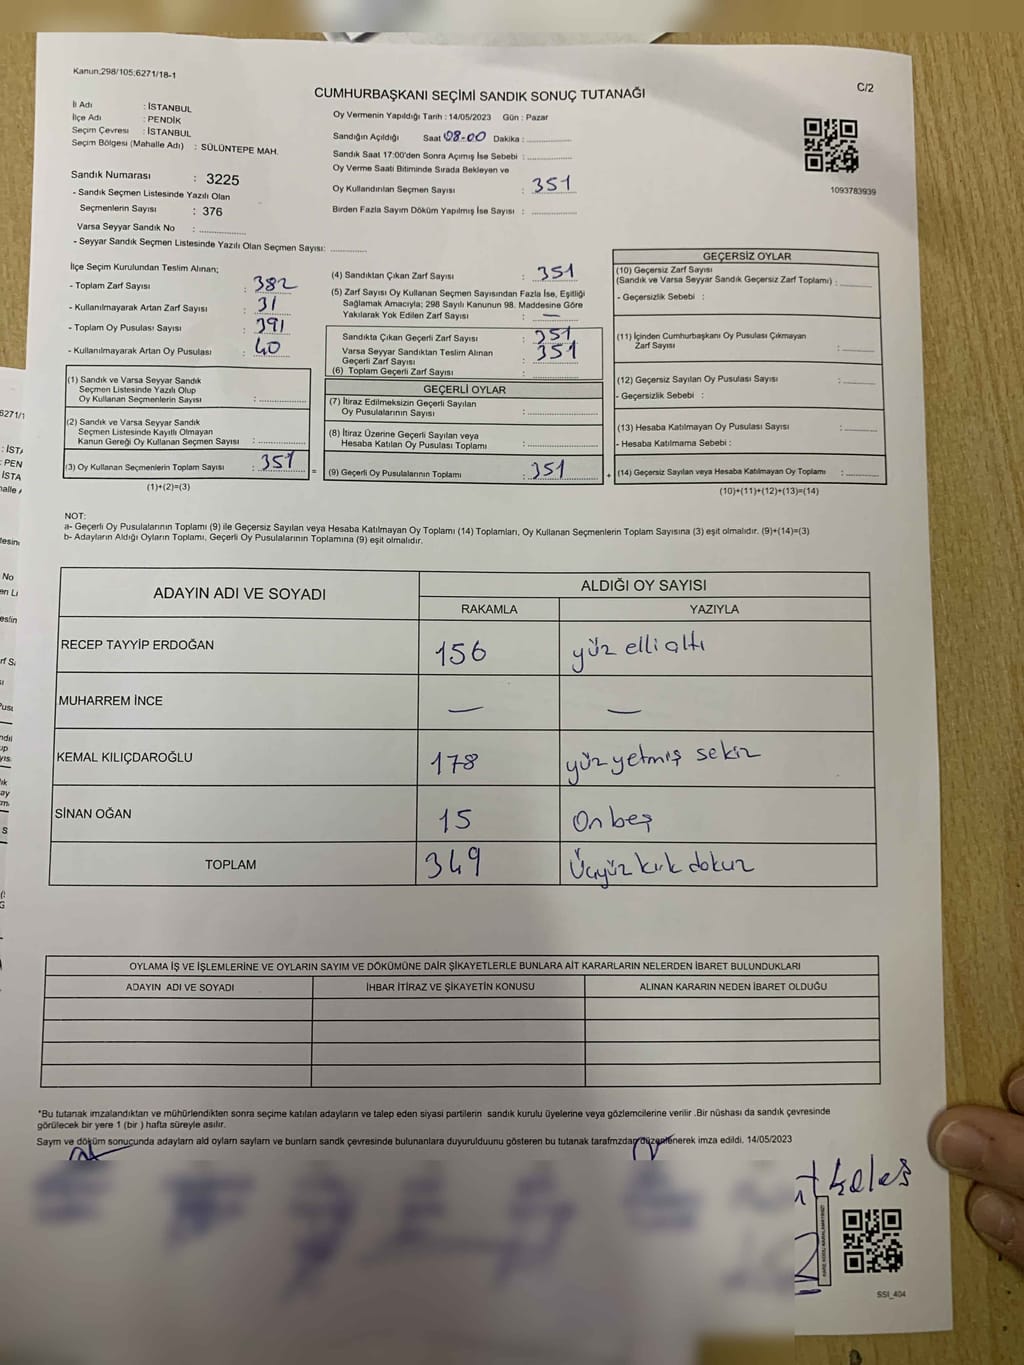 Kanun;298/105;6271/18-1
C/2
CUMHURBAŞKANI SEÇİMİ SANDIK SONUÇ TUTANAĞI
İl Adı : İSTANBUL
İlçe Adı : PENDİK
Seçim Çevresi : İSTANBUL
Seçim Bölgesi (Mahalle Adı) : SÜLÜNTEPE MAH.
Sandık Numarası : 3225
- Sandık Seçmen Listesinde Yazılı Olan
Seçmenlerin Sayısı : 376
Varsa Seyyar Sandık No :
- Seyyar Sandık Seçmen Listesinde Yazılı Olan Seçmen Sayısı:
Oy Vermenin Yapıldığı Tarih : 14/05/2023 Gün : Pazar
Sandığın Açıldığı Saat 08-00 Dakika :
Sandık Saat 17:00'den Sonra Açımış İse Sebebi :
Oy Verme Saati Bitiminde Sırada Bekleyen ve
Oy Kullandırılan Seçmen Sayısı : 351
Birden Fazla Sayım Döküm Yapılmış İse Sayısı :
1093783939
İlçe Seçim Kurulundan Teslim Alınan;
- Toplam Zarf Sayısı : 382
- Kullanılmayarak Artan Zarf Sayısı : 31
- Toplam Oy Pusulası Sayısı : 391
- Kullanılmayarak Artan Oy Pusulası : 40
(1) Sandık ve Varsa Seyyar Sandık
Seçmen Listesinde Yazılı Olup
Oy Kullanan Seçmenlerin Sayısı :
(2) Sandık ve Varsa Seyyar Sandık
Seçmen Listesinde Kayıtlı Olmayan
Kanun Gereği Oy Kullanan Seçmen Sayısı :
(3) Oy Kullanan Seçmenlerin Toplam Sayısı : 351
(1)+(2)=(3)
(4) Sandıktan Çıkan Zarf Sayısı : 351
(5) Zarf Sayısı Oy Kullanan Seçmen Sayısından Fazla İse, Eşitliği
Sağlamak Amacıyla; 298 Sayılı Kanunun 98. Maddesine Göre
Yakılarak Yok Edilen Zarf Sayısı : —
Sandıkta Çıkan Geçerli Zarf Sayısı : 351
Varsa Seyyar Sandıktan Teslim Alınan
Geçerli Zarf Sayısı : 351
(6) Toplam Geçerli Zarf Sayısı :
GEÇERLİ OYLAR
(7) İtiraz Edilmeksizin Geçerli Sayılan
Oy Pusulalarının Sayısı :
(8) İtiraz Üzerine Geçerli Sayılan veya
Hesaba Katılan Oy Pusulası Toplamı :
(9) Geçerli Oy Pusulalarının Toplamı : 351
=
+
GEÇERSİZ OYLAR
(10) Geçersiz Zarf Sayısı
(Sandık ve Varsa Seyyar Sandık Geçersiz Zarf Toplamı) :
- Geçersizlik Sebebi :
(11) İçinden Cumhurbaşkanı Oy Pusulası Çıkmayan
Zarf Sayısı :
(12) Geçersiz Sayılan Oy Pusulası Sayısı :
- Geçersizlik Sebebi :
(13) Hesaba Katılmayan Oy Pusulası Sayısı :
- Hesaba Katılmama Sebebi :
(14) Geçersiz Sayılan veya Hesaba Katılmayan Oy Toplamı :
(10)+(11)+(12)+(13)=(14)
NOT:
a- Geçerli Oy Pusulalarının Toplamı (9) ile Geçersiz Sayılan veya Hesaba Katılmayan Oy Toplamı (14) Toplamları, Oy Kullanan Seçmenlerin Toplam Sayısına (3) eşit olmalıdır. (9)+(14)=(3)
b- Adayların Aldığı Oyların Toplamı, Geçerli Oy Pusulalarının Toplamına (9) eşit olmalıdır.
ADAYIN ADI VE SOYADI ALDIĞI OY SAYISI
RAKAMLA YAZIYLA
RECEP TAYYİP ERDOĞAN 156 yüz elli altı
MUHARREM İNCE — —
KEMAL KILIÇDAROĞLU 178 yüz yetmiş sekiz
SİNAN OĞAN 15 On beş
TOPLAM 349 Üçyüz kırk dokuz
OYLAMA İŞ VE İŞLEMLERİNE VE OYLARIN SAYIM VE DÖKÜMÜNE DAİR ŞİKAYETLERLE BUNLARA AİT KARARLARIN NELERDEN İBARET BULUNDUKLARI
ADAYIN ADI VE SOYADI İHBAR İTİRAZ VE ŞİKAYETİN KONUSU ALINAN KARARIN NEDEN İBARET OLDUĞU
*Bu tutanak imzalandıktan ve mühürlendikten sonra seçime katılan adayların ve talep eden siyasi partilerin sandık kurulu üyelerine veya gözlemcilerine verilir .Bir nüshası da sandık çevresinde
görülecek bir yere 1 (bir ) hafta süreyle asılır.
Saym ve döküm sonucunda adaylarn ald oylarn saylarn ve bunlarn sandk çevresinde bulunanlara duyurulduunu gösteren bu tutanak tarafmzdan düzenlenerek imza edildi. 14/05/2023
keleş
SSI_404